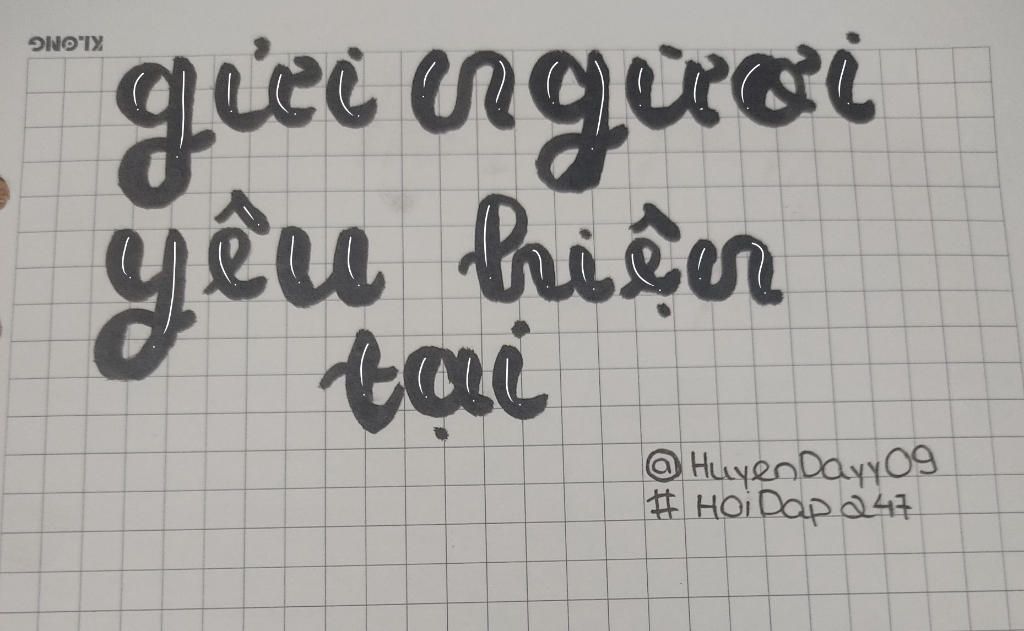 KLONG
gửi người
yêu hiện
tại
@HuyenDayy09
# HOiDap247